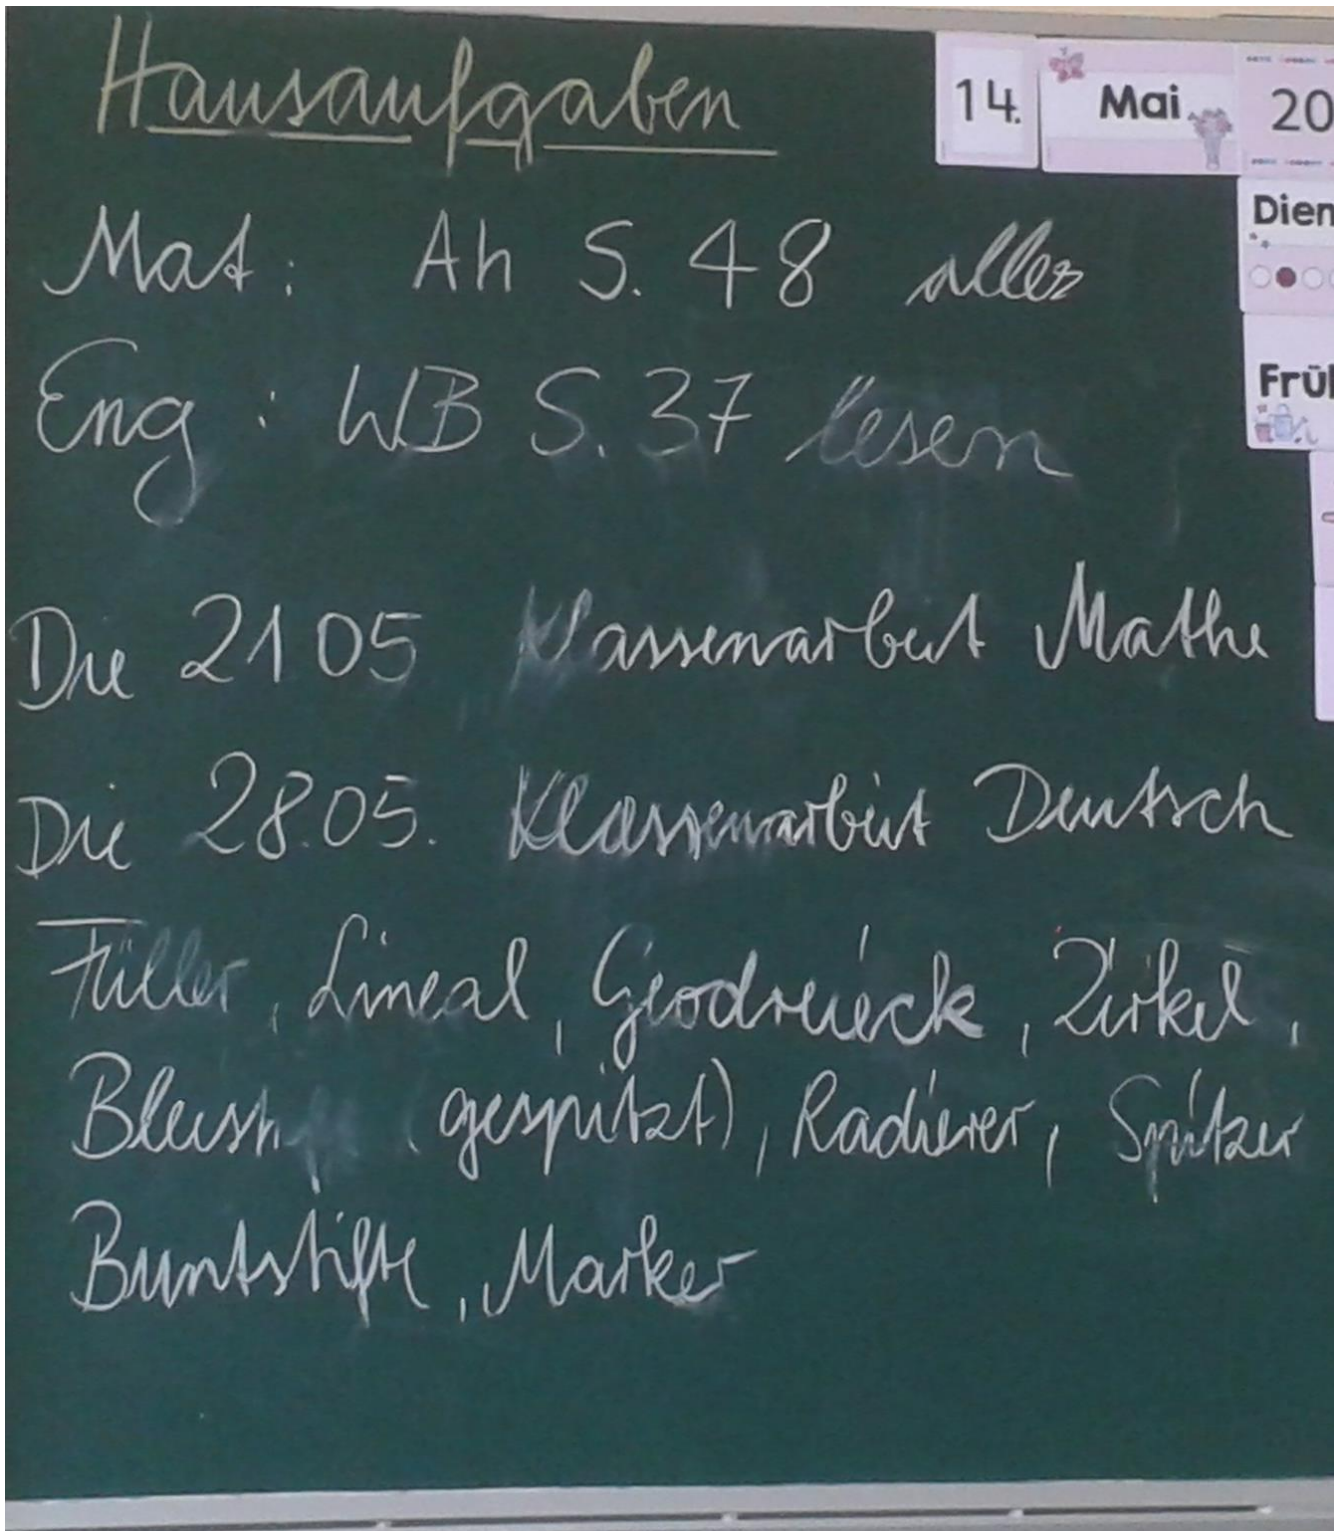 Hausaufgaben
14. Mai 20
Dien
Früh
Mat: Ah S. 48 alles
Eng: WB S. 37 lesen
Die 21 05 Klassenarbeit Mathe
Die 28.05. Klassenarbeit Deutsch
Füller, Lineal, Geodreieck, Zirkel,
Bleistift (gespitzt), Radierer, Spitzer
Buntstifte, Marker